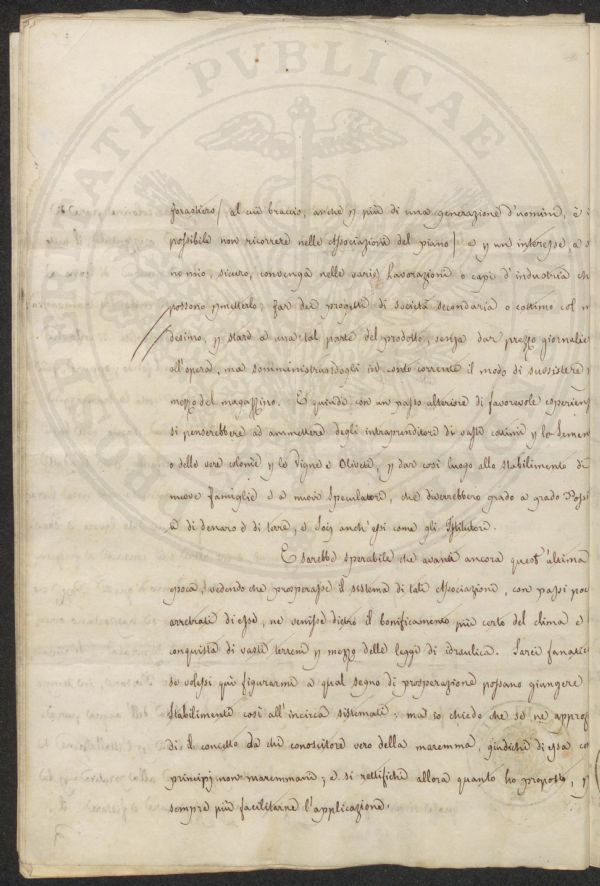 PROSPERITATI PUBLICAE
forastiero / al cui braccio, anche p più di una generazione d'uomini, è i
possibile non ricorrere nelle Associazione del piano / e p un interesse a
no mio, sicuro, convenga nelle varie Lavorazioni o capi d'industria ch
possono pmetterlo, far dei progetti di società secondaria o cottimo col m
desimo, p stard a una tal parte del prodotto, senza dar prezzo giornalie
all'opera, ma somministrandogli in conto corrente il modo di sussistere p
mezzo del magazzino. E quindi con un passo ulteriore di favorevole esperienz
si penserebbe ad ammettere degli intraprenditori di vasti cottimi p le Sement
o delle vere colonie p le Vigne e Oliveti, p dar così luogo allo stabilimento di
nuove famiglie e a nuovi speculatori, che diverrebbero grado a grado Possi
di denaro o di terre, e Socj anch'essi come gli Istitutori.
E sarebbe sperabile che avanti ancora quest'ultima
epoca, vedendo che prosperasse il sistema di tali Associazioni, con passi poc
arretrati di esse, ne venisse dietro il bonificamento più certo del clima e
conquista di vasti terreni p mezzo delle leggi di idraulica. Sarei fanatic
se volessi qui figurarmi a qual segno di prosperazione possano giungere
stabilimenti così all'incirca sistemati; ma io chiedo che se ne approf
di il concetto da chi conoscitore vero della maremma, giudichi di essa co
principj non maremmani; e si rettifichi allora quanto ho proposto, p
sempre più facilitarne l'applicazione.